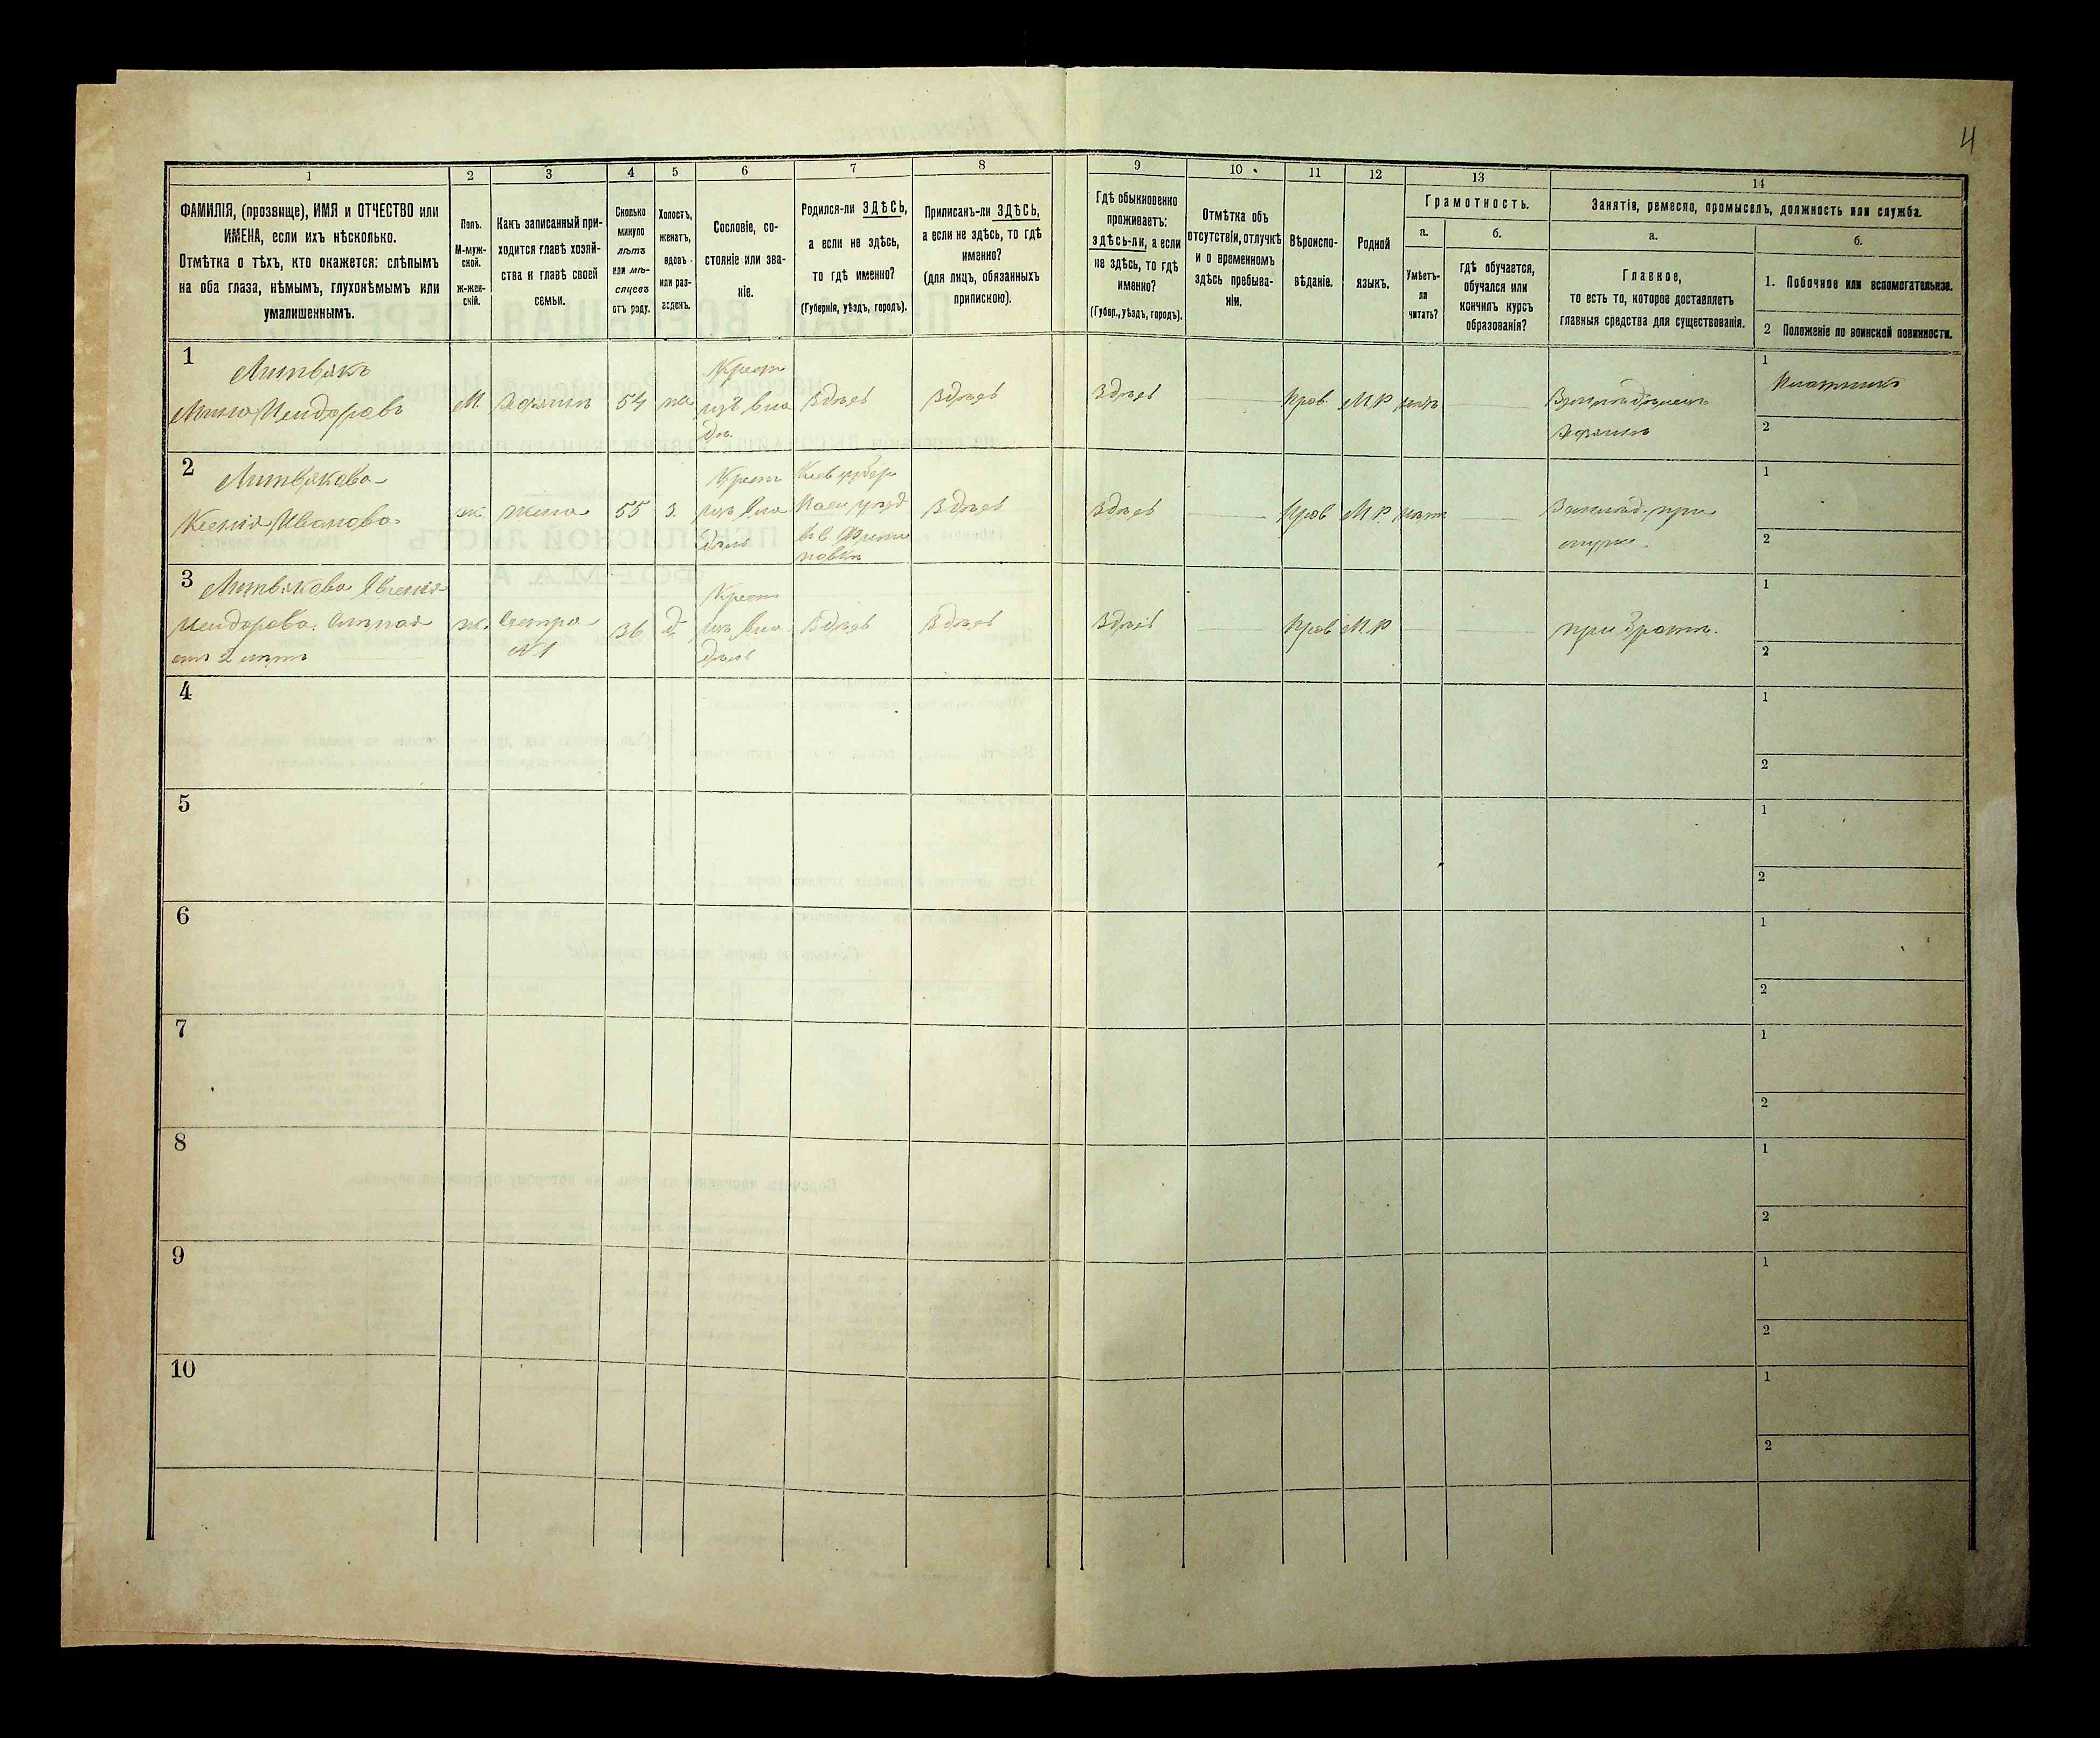 4
1
2
3
4
5
6
7
8
9
10
11
12
13
14
ФАМИЛІЯ, (прозвище), ИМЯ и ОТЧЕСТВО или
ИМЕНА, если ихъ нѣсколько.
Отмѣтка о тѣхъ, кто окажется: слѣпымъ
на оба глаза, нѣмымъ, глухонѣмымъ или
умалишеннымъ.
Полъ.
М-муж-
ской.
Ж-жен-
скій.
Какъ записанный при-
ходится главѣ хозяй-
ства и главѣ своей
семьи.
Сколько
минуло
лѣтъ
или мѣ-
сяцевъ
отъ роду.
Холостъ,
женатъ,
вдовъ
или раз-
веденъ.
Сословіе, со-
стояніе или зва-
ніе.
Родился-ли ЗДѢСЬ,
а если не здѣсь,
то гдѣ именно?
(Губернія, уѣздъ, городъ).
Приписанъ-ли ЗДѢСЬ,
а если не здѣсь, то гдѣ
именно?
(для лицъ, обязанныхъ
припискою).
Гдѣ обыкновенно
проживаетъ:
здѣсь-ли, а если
не здѣсь, то гдѣ
именно?
(Губер., уѣздъ, городъ).
Отмѣтка объ
отсутствіи, отлучкѣ
и о временномъ
здѣсь пребыва-
ніи.
Вѣроиспо-
вѣданіе.
Родной
языкъ.
Грамотность.
а.
Умѣетъ-
ли
читать?
б.
гдѣ обучается,
обучался или
кончилъ курсъ
образованія?
Занятія, ремесло, промыселъ, должность или служба.
а.
Главное,
то есть то, которое доставляетъ
главныя средства для существованія.
б.
1. Побочное или вспомогательное.
2 Положеніе по воинской повинности.
1
Литвякъ
М.
54
Крест
изъ вла
дѣ.
Здѣсь
Здѣсь
Здѣсь
Прав.
М.Р
нѣтъ
хозяинъ
1
Плотникъ
2
2
Литвякова
Ксенія Иванова
ж.
жена
55
з.
Крест
изъ вла
дѣль
Кіев губер
уѣзд
Здѣсь
Здѣсь
Прав
М.Р.
нѣтъ
Земледѣл. при
мужѣ.
1
2
3
Литвякова Евгенія
Исидорова. Слѣпая
отъ 2 лѣтъ
ж.
Сестра
№1
36
д.
Крест
изъ вла
дѣль
Здѣсь
Здѣсь
Здѣсь
Прав
М.Р
при братѣ.
1
2
4
1
2
5
1
2
6
1
2
7
1
2
8
1
2
9
1
2
10
1
2